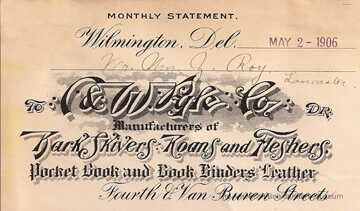 MONTHLY STATEMENT.
Wilmington, Del. MAY 2 - 1906
J. Roy,
Lancaster
To C & W. Pyle Co., DR.
Manufacturers of
Bark Skivers, Roans and Fleshers
Pocket Book and Book Binders Leather
Fourth & Van Buren Streets